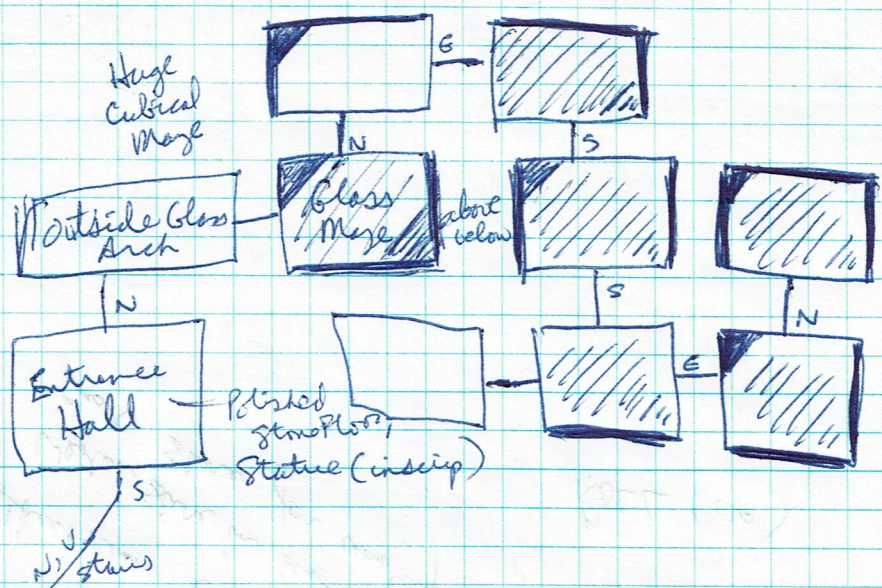 Huge
Cubical
Maze
E
N
S
Outside Glass
Arch
Glass
Maze
above
below
N
S
N
E
Entrance
Hall
Polished
Stone Floor,
Statue (inscrip)
S
U
Stairs